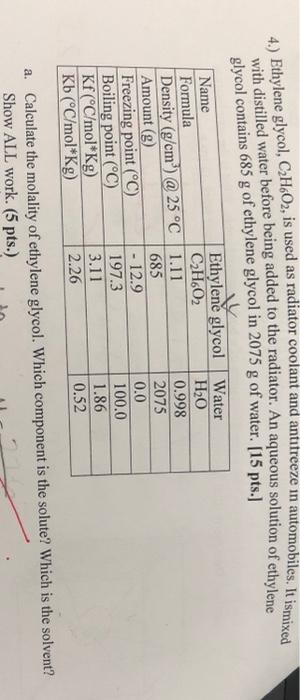 4.) Ethylene glycol, C₂H₆O₂, is used as radiator coolant and antifreeze in automobiles. It ismixed
with distilled water before being added to the radiator. An aqueous solution of ethylene
glycol contains 685 g of ethylene glycol in 2075 g of water. [15 pts.]
Name Ethylene glycol Water
Formula C₂H₆O₂ H₂O
Density (g/cm³) @ 25 °C 1.11 0.998
Amount (g) 685 2075
Freezing point (°C) - 12.9 0.0
Boiling point (°C) 197.3 100.0
Kf (°C/mol*Kg) 3.11 1.86
Kb (°C/mol*Kg) 2.26 0.52
a. Calculate the molality of ethylene glycol. Which component is the solute? Which is the solvent?
Show ALL work. (5 pts.)